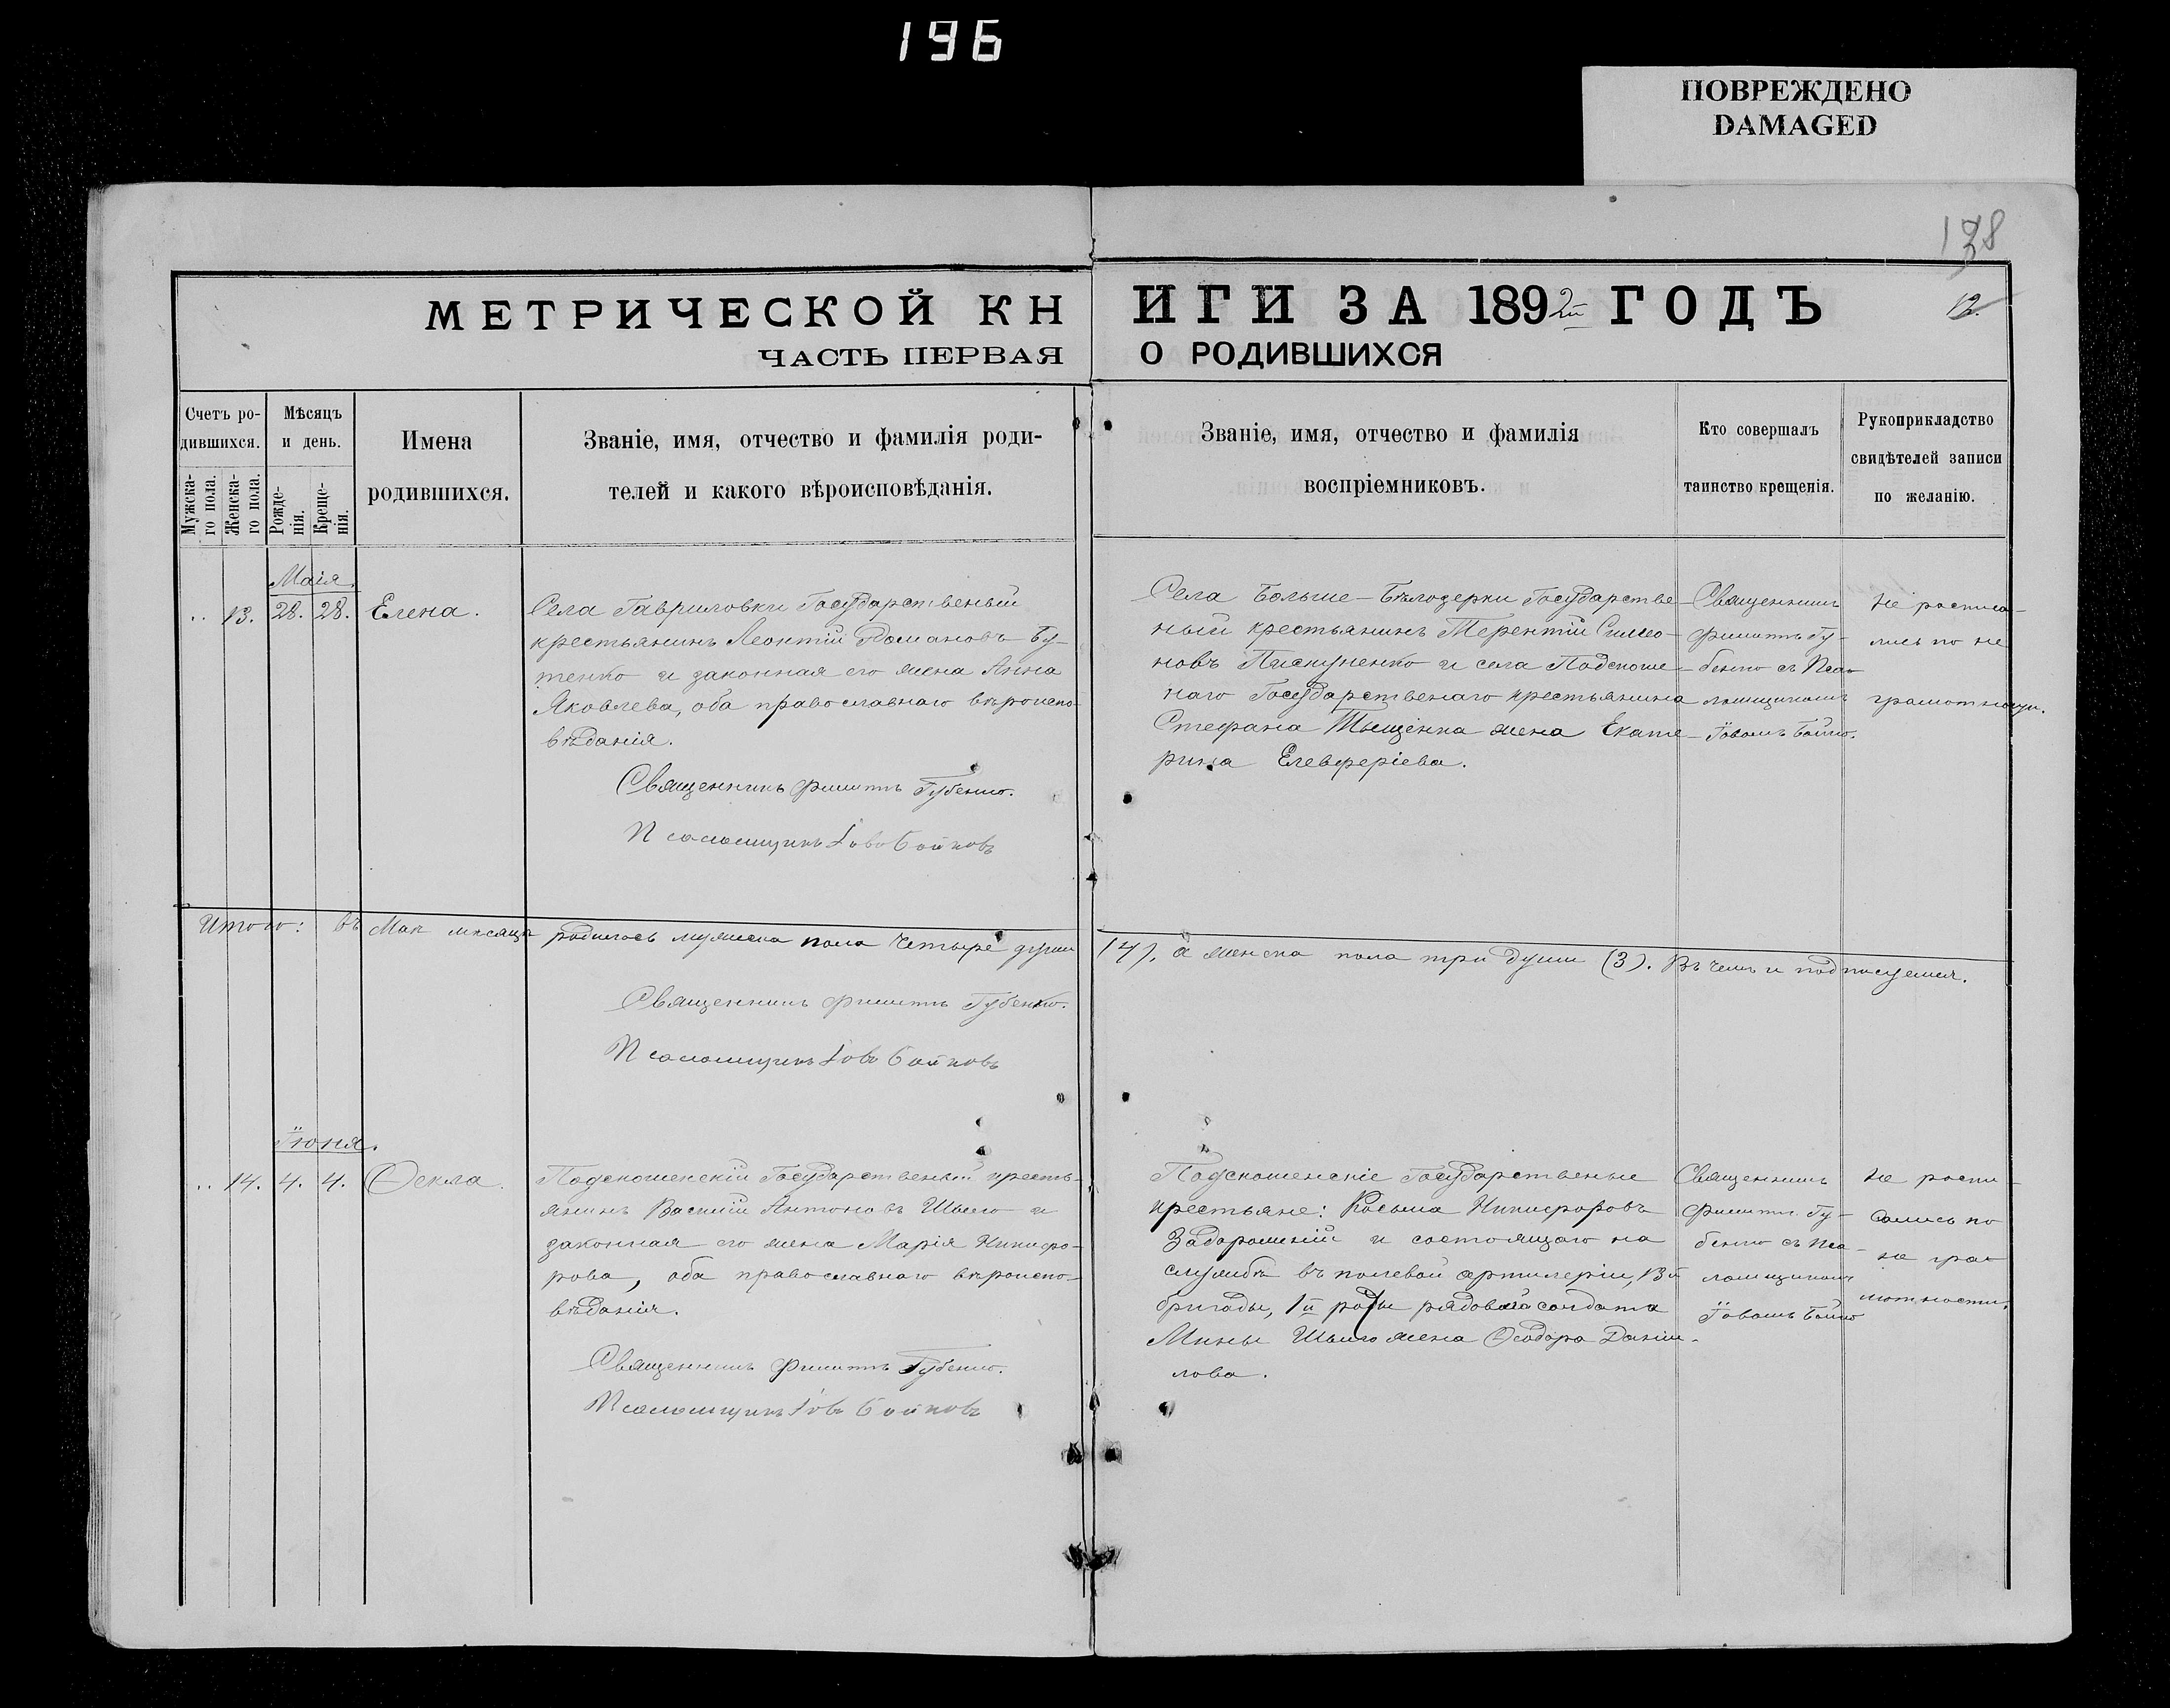 196
ПОВРЕЖДЕНО
DAMAGED
138
12.
МЕТРИЧЕСКОЙ КНИГИ ЗА 1892й ГОДЪ
ЧАСТЬ ПЕРВАЯ О РОДИВШИХСЯ
Счетъ ро-
дившихся.
Мужска-
го пола.
Женска-
го пола.
Мѣсяцъ
и день.
Рожде-
нія.
Креще-
нія.
Имена
родившихся.
Званіе, имя, отчество и фамилія роди-
телей и какого вѣроисповѣданія.
Званіе, имя, отчество и фамилія
воспріемниковъ.
Кто совершалъ
таинство крещенія.
Рукоприкладство
свидѣтелей записи
по желанію.
Маія.
.. 13. 28. 28. Елена.
Села Гавриловки Государственый
крестьянинъ Леонтій Романовъ Бу-
тенко и законная его жена Анна
Яковлева, оба православнаго вѣроиспо-
вѣданія.
Священникъ Филиппъ Губенко.
Псаломщикъ Іовъ Бойковъ
Села Больше-Бѣлозерки Государстве-
ный крестьянинъ Терентій Симео-
новъ Пискуненко и села Подспоше-
наго Государственаго крестьянина
Стефана Тыщенка жена Екате-
рина Елевферіева.
Священникъ
Филиппъ Гу-
бенко съ Пса-
ломщикомъ
Іовомъ Бойко.
Не росписа-
лись по не
грамотности.
Итого: въ Маѣ мѣсяцѣ родилось мужеска пола четыре души (4), а женска пола три души (3). Въ чемъ и подписуемся.
Священникъ Филиппъ Губенко.
Псаломщикъ Іовъ Бойковъ
Іюня.
.. 14. 4. 4. Ѳекла.
Подспошенскій Государственый кресть-
янинъ Василій Антоновъ Шыло и
законная его жена Марія Никифо-
рова, оба православнаго вѣроиспо-
вѣданія.
Священникъ Филиппъ Губенко.
Псаломщикъ Іовъ Бойковъ
Подспошенскіе Государственые
крестьяне: Косьма Никифоровъ
Задорожній и состоящаго на
службѣ въ полевой артилеріи, 13й
бригады, 1й роты рядоваго солдата
Мины Шыло жена Ѳеодора Даніи-
лова.
Священникъ
Филиппъ Гу-
бенко съ Пса-
ломщикомъ
Іовомъ Бойко
Не роспи-
сались по
не гра-
мотности.